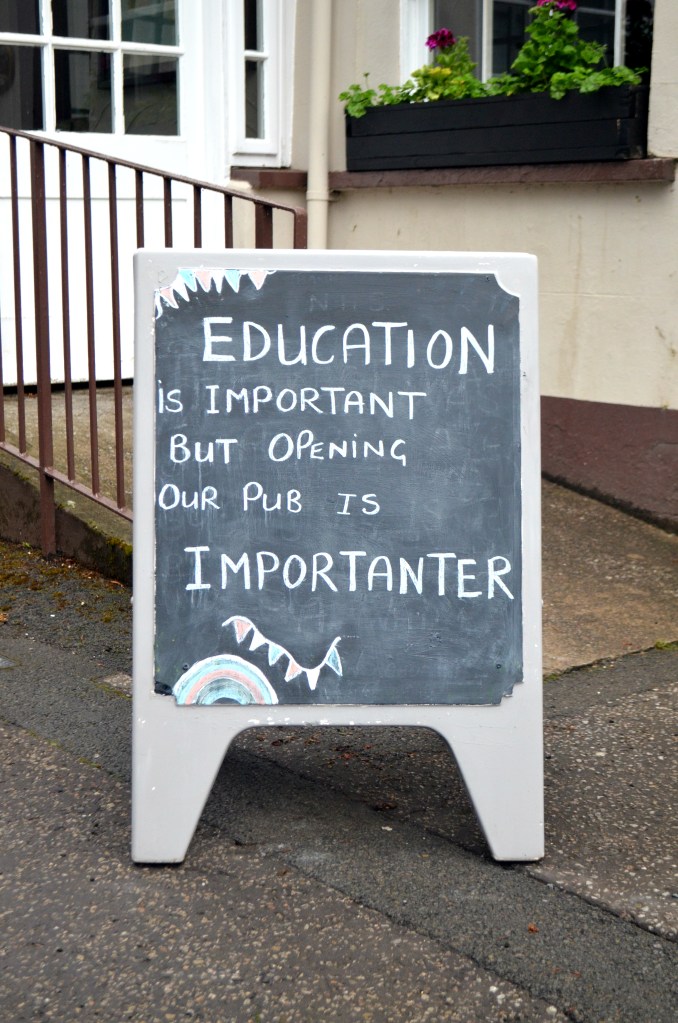 NHS
EDUCATION
iS IMPORTANT
BUT OPENiNG
OUR PUB IS
IMPORTANTER